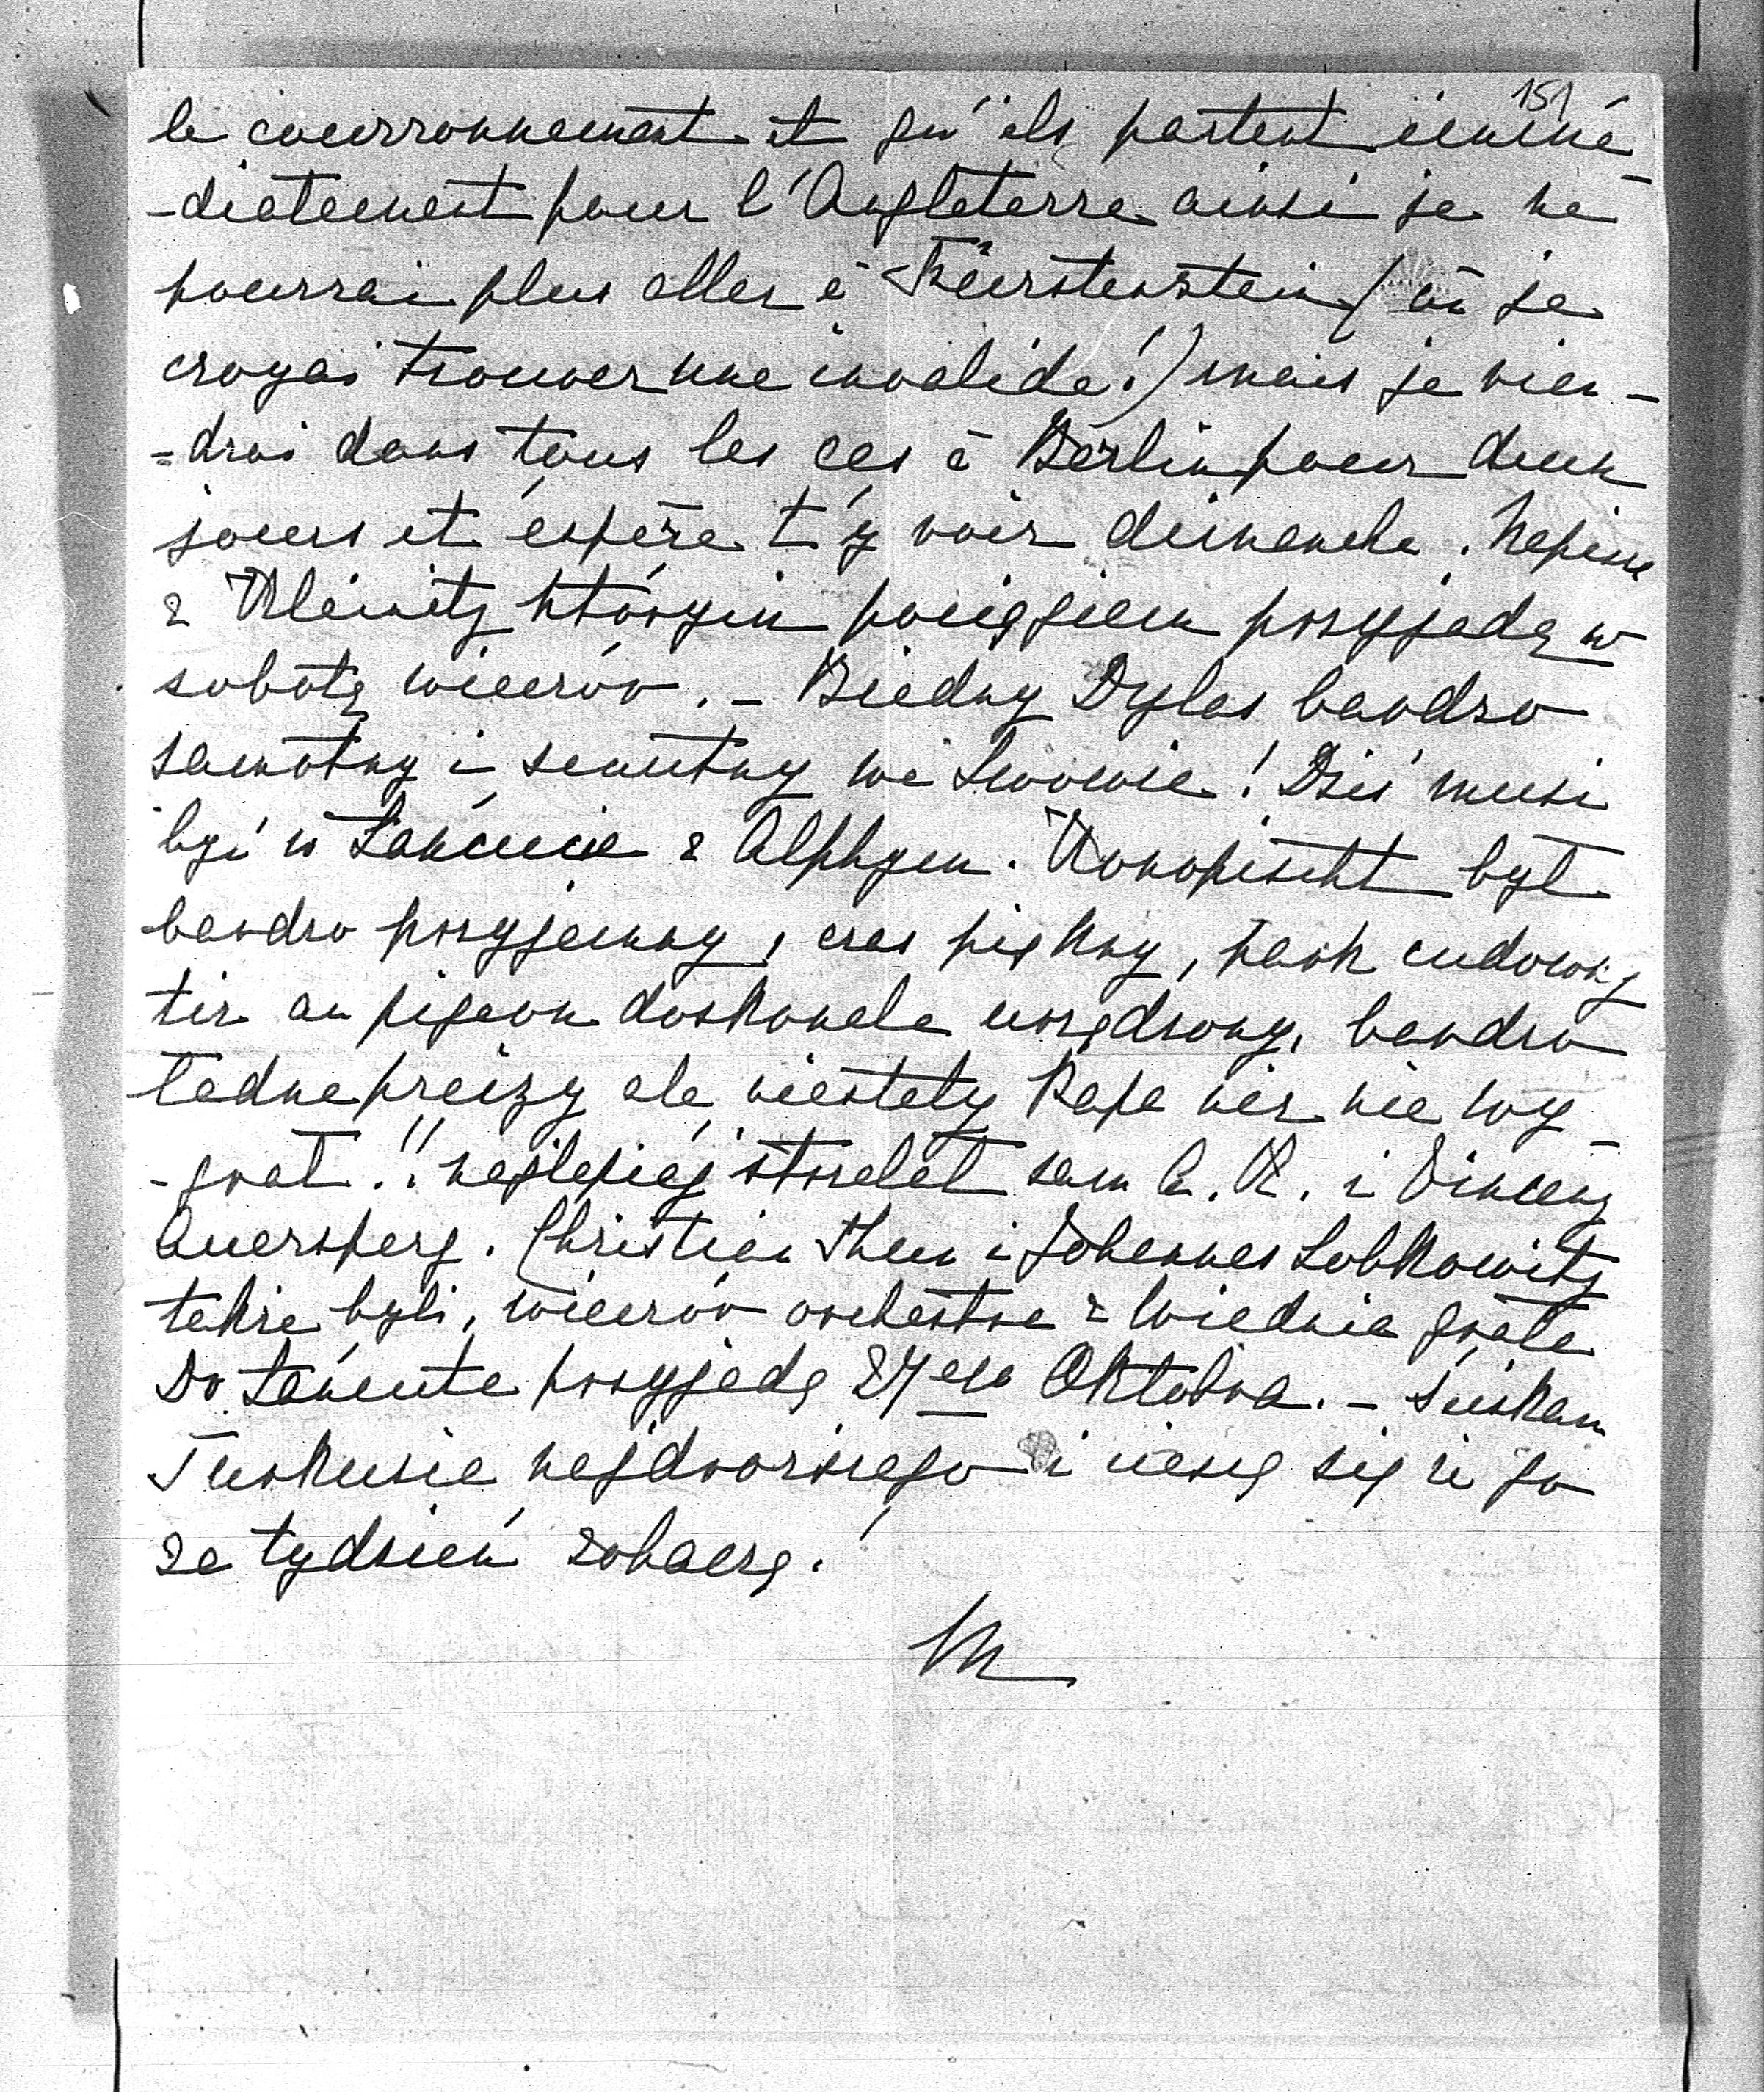 151
le couronnement et qu'ils partent immé-
-diatement pour l'Angleterre ainsi je ne
pourrai plus aller à Fürstenstein (où je
croyai trouver une invalide!) mais je vien-
-drai dans tous les cas à Berlin pour deux
jours et éspère t'y voir dimanche. Napiszę
z Kleinitz którym pociągiem przyjadę w
sobotę wieczór. – Biedny Dylas bardzo
samotny i smutny we Lwowie! Dziś musi
być w Łańcucie z Alphym. Konopischt był
bardzo przyjemny, czas piękny, park cudowny
tir au pigeon doskonale urządzony, bardzo
ładne preizy ale niestety Papa nic nie wy-
-grał!! najlepiéj strzelał sam E. K. i Vincenz
Auersperg. Christian Thun i Johannes Lobkowitz
także byli, wieczór orchestra z Wiednia grała
Do Łańcuta przyjadę 27ego Oktobra. – Ściskam
Tuskusia najdroższego i cieszę się że go
za tydzień zobaczę.
M